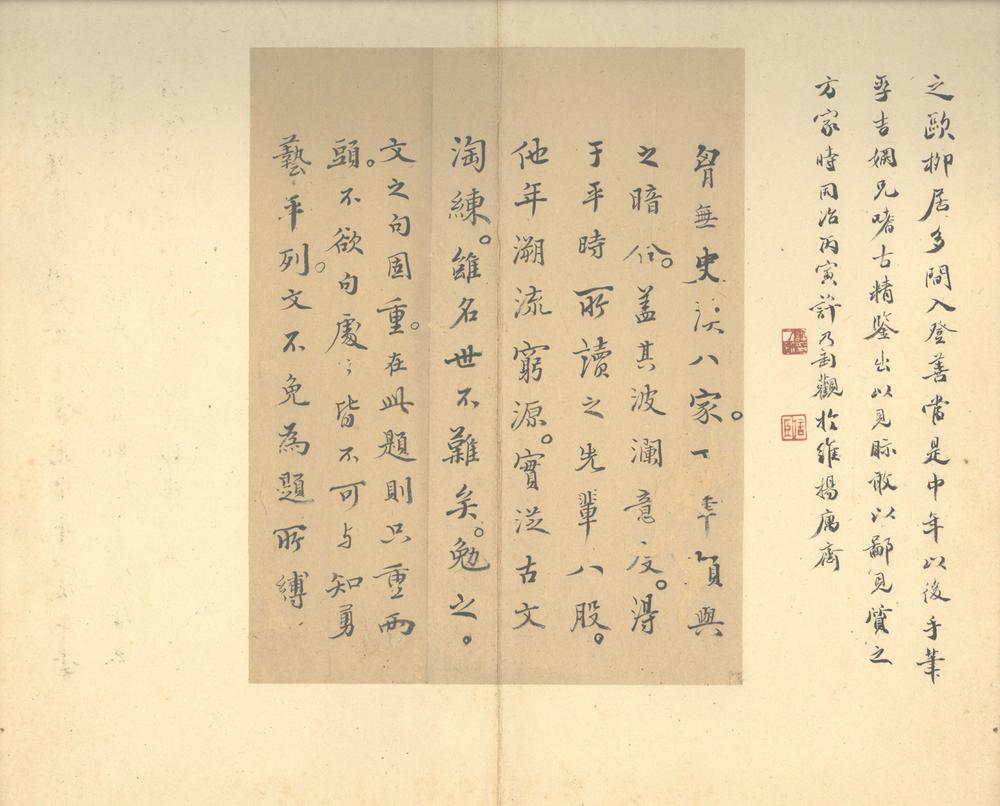 之歐柳居多間入登善當是中年以後手筆
年吉姻兄嗜古精鑒出以見眎敢以鄙見質之
方家時同治丙寅許乃釗觀於維揚寓齋
胷無史漢八家。下筆質與
之暗合。蓋其波瀾意度。得
于平時所讀之先輩八股。
他年溯流窮源。實從古文
淘練。雖名世不難矣。勉之。
文之句固重。在此題則只重兩
頭。不欲句處〻皆不可与知勇
藝平列。文不免為題所縛
信臣